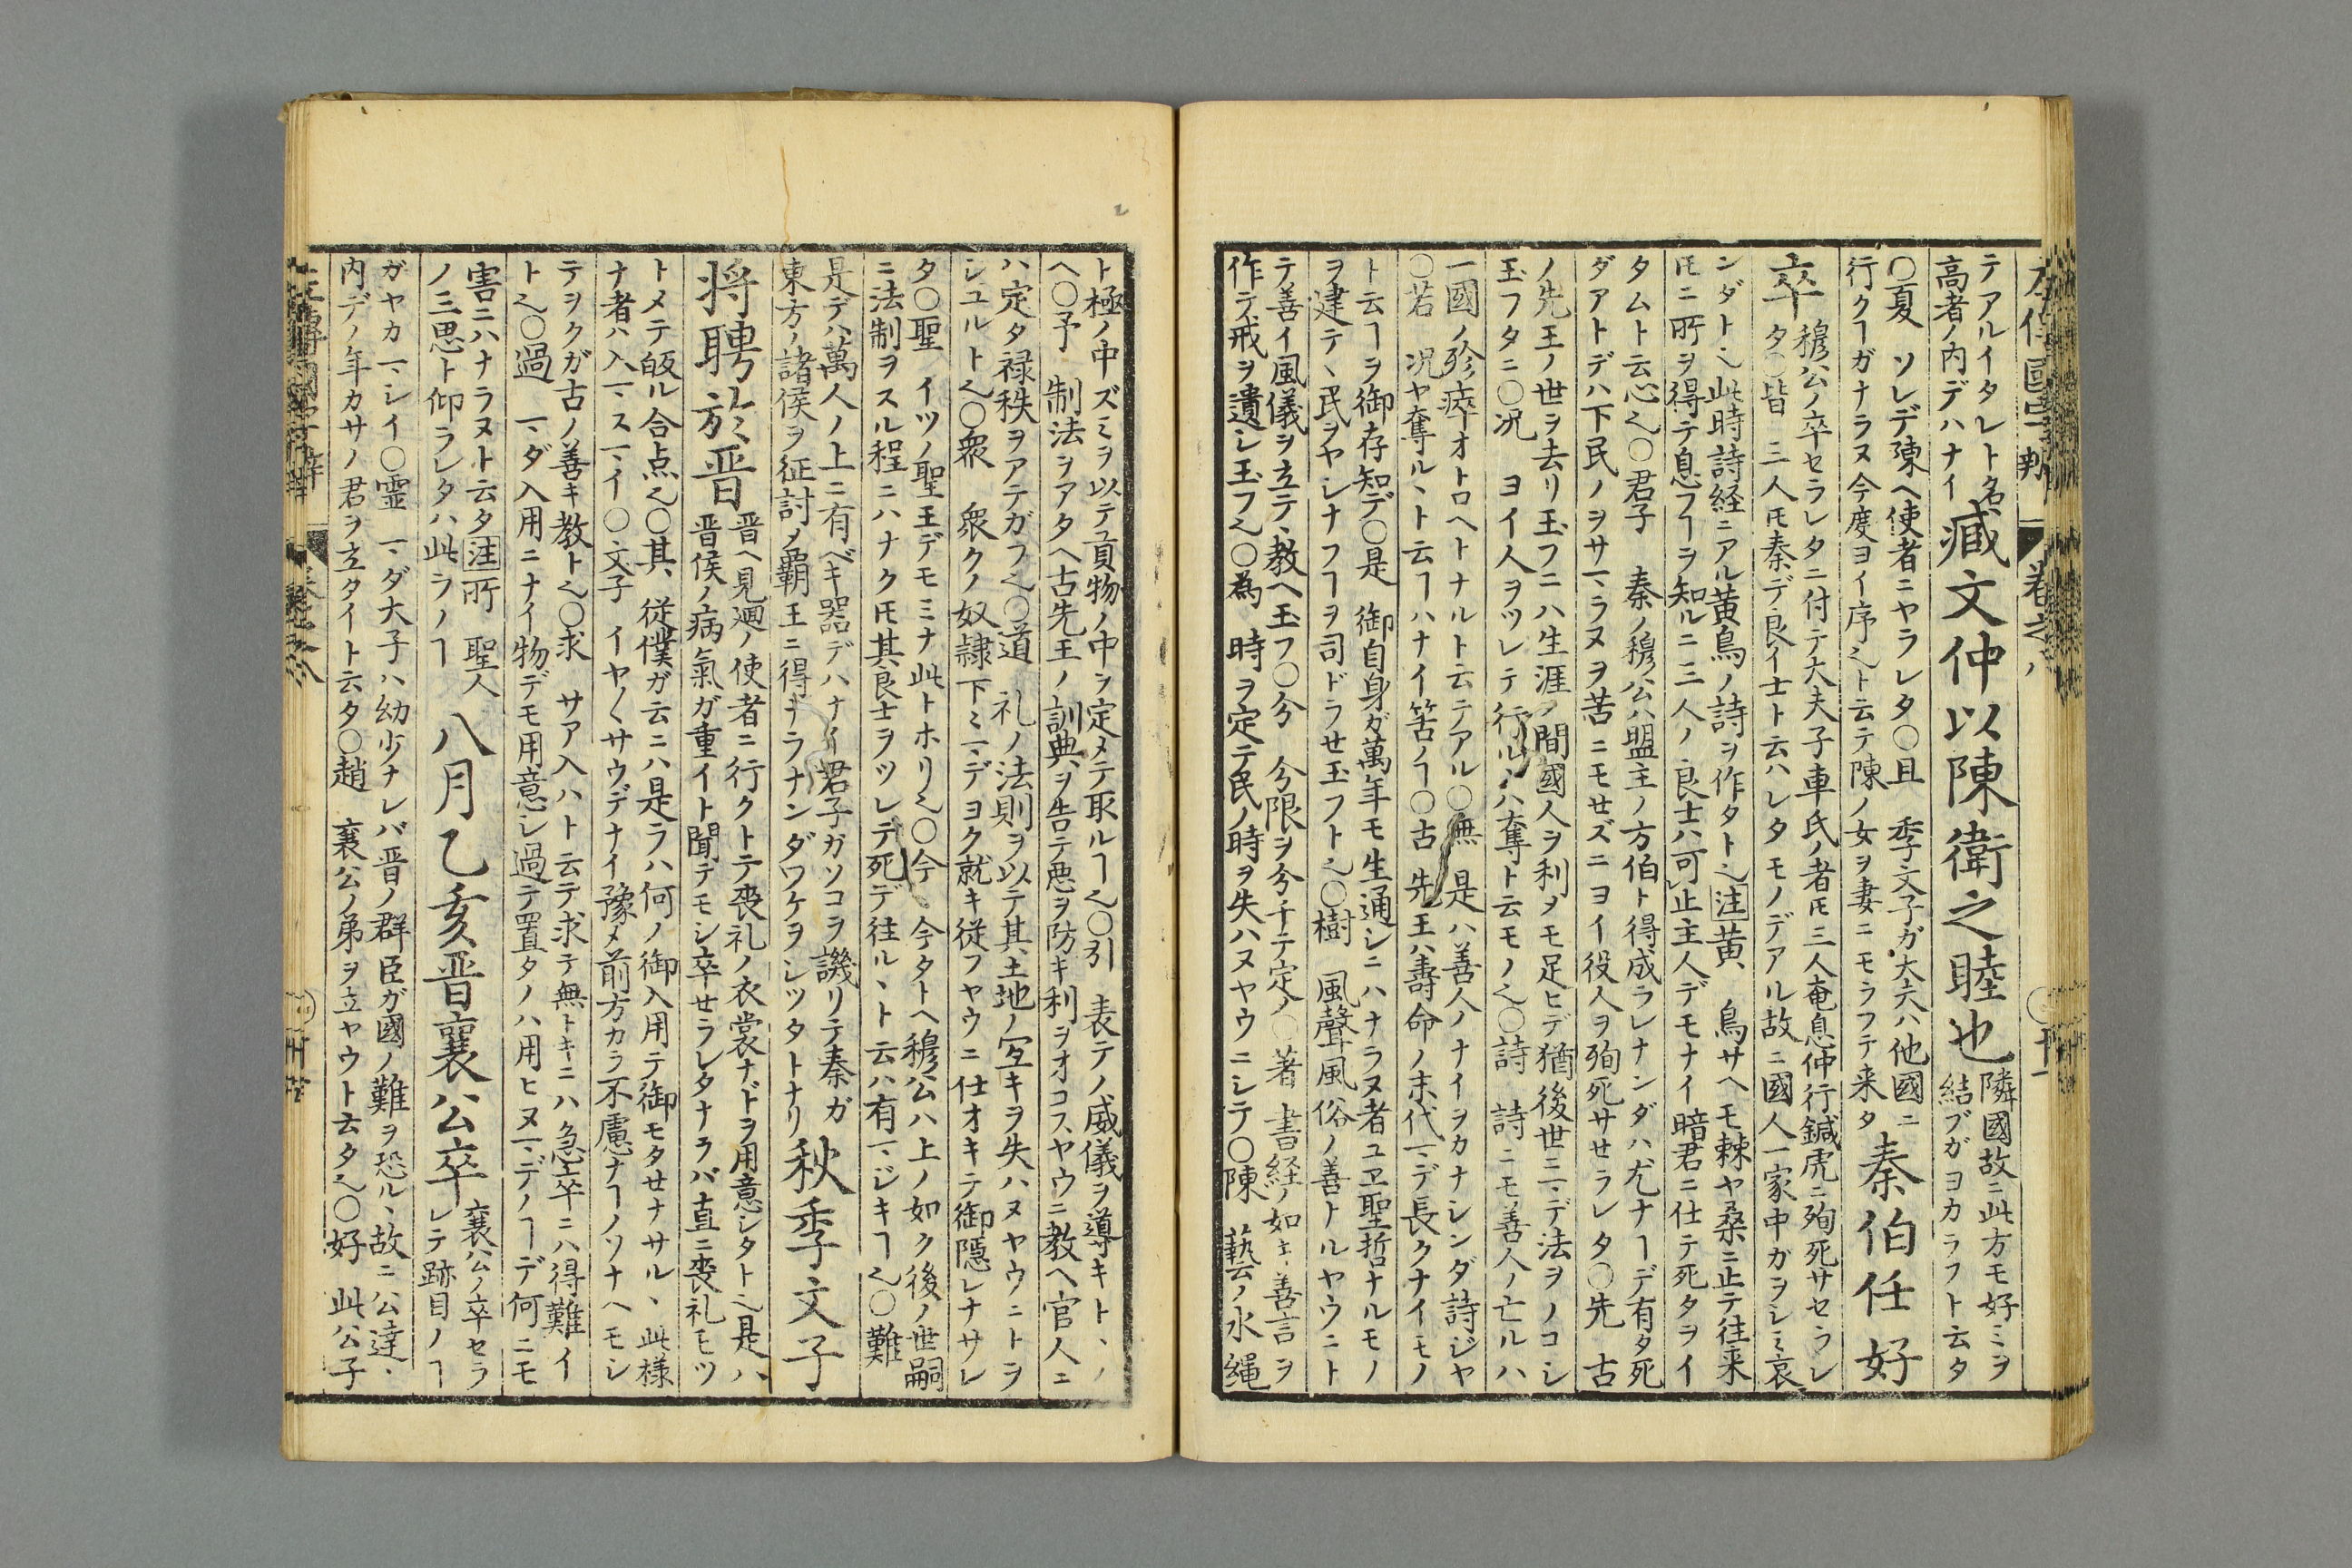 左傳國字辨 卷之八
テアルイタレト名
高者ノ内デハナイ
臧文仲以陳衛之睦也
隣國故ニ此方モ好ミヲ
結ブガヨカラフト云タ
〇夏 ソレデ陳ヘ使者ニヤラレタ〇且 季文子ガ大夫ハ他國ニ
行クヿガナラヌ今度ヨイ序乀ト云テ陳ノ女ヲ妻ニモラフテ来タ
秦伯任好
卒
穆公ノ卒セラレタニ付テ大夫子車氏ノ者𪜈三人奄息仲行鍼虎ニ殉死サセラレ
タ〇皆 三人𪜈秦デ良イ士ト云ハレタモノデアル故ニ國人一家中ガヲシミ哀
ンダト乀此時詩経ニアル黄鳥ノ詩ヲ作タト乀注黄、鳥サヘモ棘ヤ桑ニ止テ往来
𪜈ニ所ヲ得テ息フヿヲ知ルニ三人ノ良士ハ可止主人デモナイ暗君ニ仕テ死タヲイ
タムト云心乀〇君子 秦ノ穆公ハ盟主ノ方伯ト得成ラレナンダハ尤ナヿデ有タ死
ダアトデハ下民ノヲサマラヌヲ苦ニモせズニヨイ役人ヲ殉死サせラレタ〇先 古
ノ先王ノ世ヲ去リ玉フニハ生涯ノ間國人ヲ利メモ足ヒデ猶後世ニマデ法ヲノコシ
玉フタニ〇况 ヨイ人ヲツレテ行ルヽハ奪ト云モノ乀〇詩 詩ニモ善人ノ亡ルハ
一國ノ殄瘁オトロヘトナルト云テアル〇無 是ハ善人ノナイヲカナシンダ詩ジヤ
〇若 况ヤ奪ルヽト云ヿハナイ筈ノヿ〇古 先王ハ壽命ノ末代マデ長クナイモノ
ト云ヿヲ御存知デ〇是 御自身ガ萬年モ生通シニハナラヌ者ユヱ聖哲ナルモノ
ヲ建テヽ民ヲヤシナフヿヲ司ドラせ玉フト乀〇樹 風聲風俗ノ善トルヤウニト
テ善イ風儀ヲ立テヽ教ヘ玉フ〇分 分限ヲ分チテ定メ〇著 書経ノ如キ善言ヲ
作テ戒ヲ遺シ玉フ乀〇為 時ヲ定テ民ノ時ヲ失ハヌヤウニシテ〇陳 藝ノ水縄
ト極ノ中ズミヲ以テ貢物ノ中ヲ定メテ取ルヿ乀〇引 表テノ威儀ヲ導キトヽノ
ヘ〇予 制法ヲアタヘ古先王ノ訓典ヲ告テ悪ヲ防キ利ヲオコスヤウニ教ヘ官人ニ
ハ定タ禄秩ヲアテガフ乀〇道 礼ノ法則ヲ以テ其土地ノ宜キヲ失ハヌヤウニトヲ
シユルト乀〇衆 衆クノ奴隷下ミマデヨク就キ従フヤウニ仕オキテ御隠レナサレ
タ〇聖 イツノ聖王デモミナ此トホリ乀〇今 今タトヘ穆公ハ上ノ如ク後ノ世嗣
ニ法制ヲスル程ニハナク𪜈其良士ヲツレデ死デ往ルヽト云ハ有マジキヿ乀〇難
是デハ萬人ノ上ニ有ベキ器デハナイ君子ガソコヲ譏リテ秦ガ
東方ノ諸侯ヲ征討メ覇王ニ得ナラナンダワケヲシツタトナリ
秋季文子
将聘於晋
晋ヘ見廻ノ使者ニ行クトテ喪礼ノ衣裳ナドヲ用意シタト乀是ハ
晋侯ノ病氣ガ重イト聞テモシ卒せラレタナラバ直ニ喪礼モツ
トメテ皈ル合点乀〇其、従僕ガ云ニハ是ラハ何ノ御入用テ御モタせナサルヽ此様
ナ者ハ入マスマイ〇文子 イヤ〱サウデナイ豫メ前方カラ不慮ナヿノソナヘモシ
テヲクガ古ノ善キ教ト乀〇求 サア入ハト云テ求テ無トキニハ急卒ニハ得難イ
ト乀〇過 マダ入用ニナイ物デモ用意シ過テ置タノハ用ヒヌマデノヿデ何ニモ
害ニハナラヌト云タ注所 聖人
ノ三思ト仰ラレタハ此ラノヿ
八月乙亥晋襄公卒
襄公ノ卒セラ
レテ跡目ノヿ
ガヤカマシイ〇霊 マダ大子ハ幼少ナレバ晋ノ群臣ガ國ノ難ヲ恐ルヽ故ニ公達ヽ
内デノ年カサノ君ヲ立タイト云タ〇趙 襄公ノ弟ヲ立ヤウト云タ乀〇好 此公子